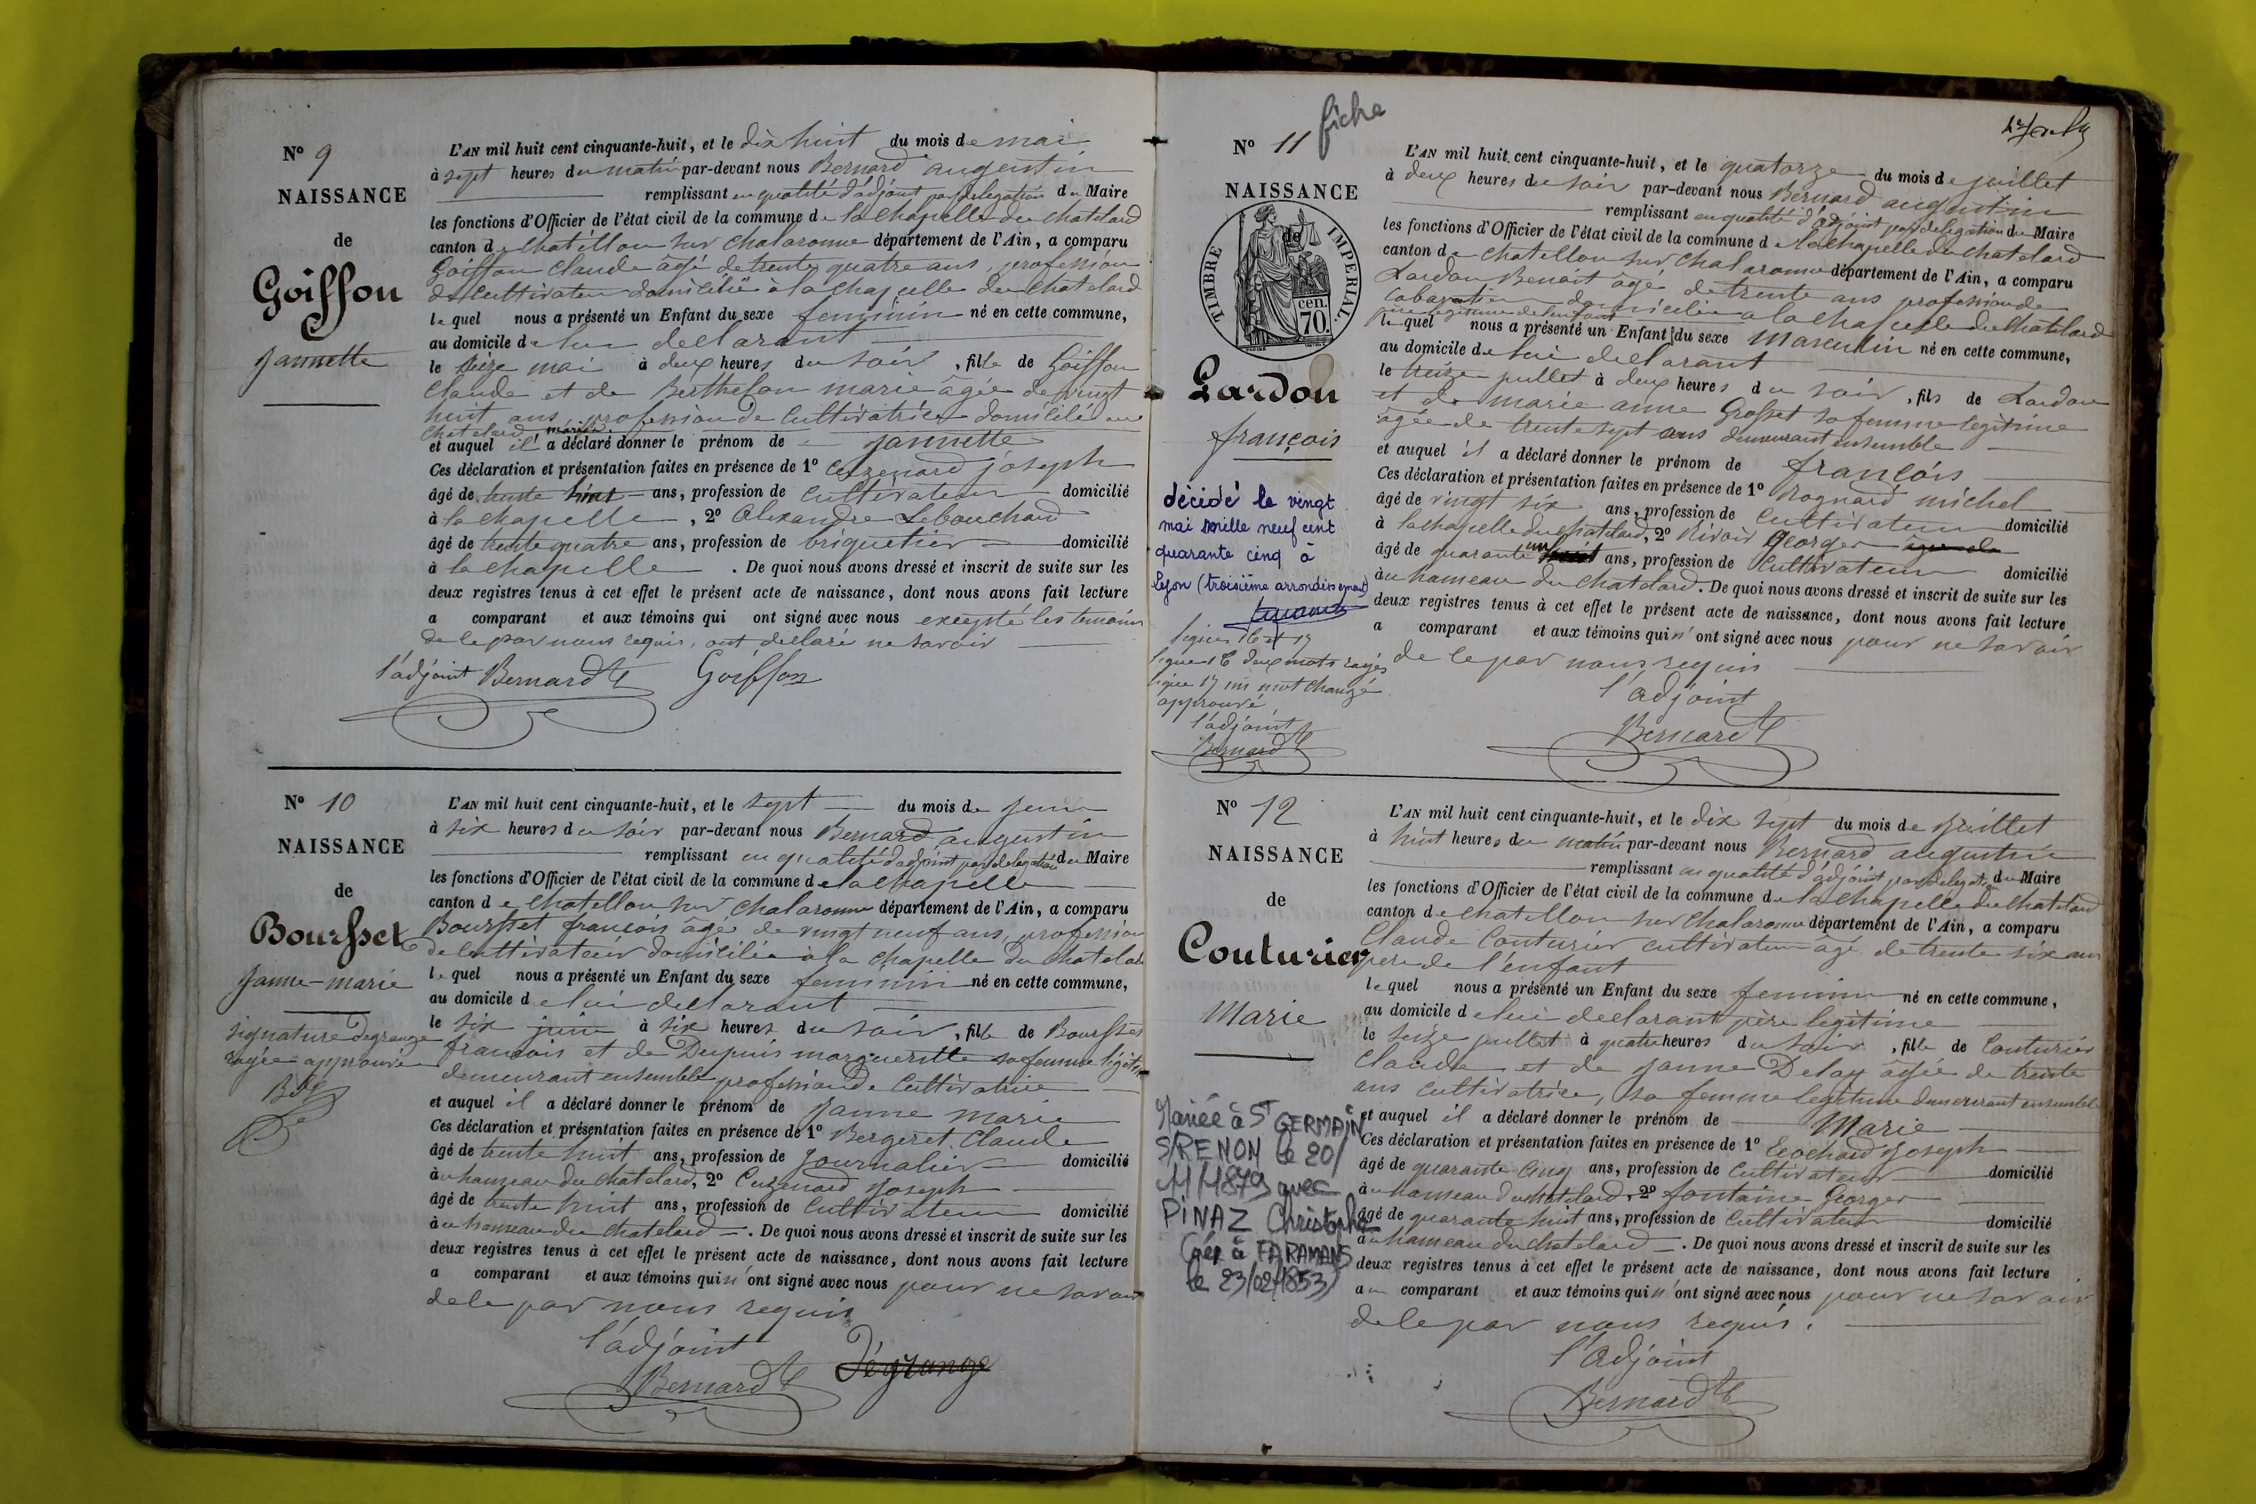 N° 9
NAISSANCE
de
Goiffon
Jannette
L'AN mil huit cent cinquante-huit, et le dix huit du mois de mai
à sept heures du matin par-devant nous Bernard augustin
remplissant en qualité d'adjoint par delegation du Maire
les fonctions d'Officier de l'état civil de la commune de la chapelle du chatelard
canton de chatillon sur chalaronne département de l'Ain, a comparu
Goiffon Claude âgé de trente quatre ans, profession
de cultivateur domicilié à la chapelle du chatelard
lequel nous a présenté un Enfant du sexe feminin né en cette commune,
au domicile de lui declarant
le seize mai à deux heures du soir, fille de Goiffon
Claude et de Berthelon marie âgée de vingt
huit ans profession de cultivatrice domicilié au
chatelard mariés.
et auquel il a déclaré donner le prénom de Jannette
Ces déclaration et présentation faites en présence de 1° Cuzenard joseph
âgé de trente huit ans, profession de cultivateur domicilié
à la chapelle, 2° Alexandre Lebouchard
âgé de trente quatre ans, profession de briquetier domicilié
à la chapelle. De quoi nous avons dressé et inscrit de suite sur les
deux registres tenus à cet effet le présent acte de naissance, dont nous avons fait lecture
a comparant et aux témoins qui ont signé avec nous excepté les temoins
de ce par nous requis, ont declaré ne savoir
l'adjoint Bernard Goiffon
N° 10
NAISSANCE
de
Boursset
Janne-marie
signature Degrange
rayée approuvée
L'AN mil huit cent cinquante-huit, et le sept du mois de Juin
à six heures du soir par-devant nous Bernard augustin
remplissant en qualité d'adjoint par delegation du Maire
les fonctions d'Officier de l'état civil de la commune de la chapelle
canton de chatillon sur chalaronne département de l'Ain, a comparu
Boursset francois âgé de vingt neuf ans, profession
de cultivateur domicilié à la chapelle du chatelard
lequel nous a présenté un Enfant du sexe feminin né en cette commune,
au domicile de lui declarant
le six juin à six heures du soir, fille de Boursset
francois et de Dupuis marguerite sa femme légitime
demeurant ensemble profession de cultivatrice
et auquel il a déclaré donner le prénom de Janne marie
Ces déclaration et présentation faites en présence de 1° Bergeret Claude
âgé de trente huit ans, profession de Journalier domicilié
au hameau du chatelard, 2° Cuzenard Joseph
âgé de trente huit ans, profession de Cultivateur domicilié
au hameau du chatelard. De quoi nous avons dressé et inscrit de suite sur les
deux registres tenus à cet effet le présent acte de naissance, dont nous avons fait lecture
a comparant et aux témoins qui n'ont signé avec nous pour ne savoir
de ce par nous requis
l'adjoint
Bernard Dégrange
N° 11
fiche
NAISSANCE
de
TIMBRE IMPERIAL.
cen.
70.
Lardon
françois
décédé le vingt
mai mille neuf cent
quarante cinq à
Lyon (troisième arrondissement)
lignes 16 et 17
ligne 16 deux mots rayés
ligne 17 un mot changé
approuvé
l'adjoint
Bernard
L'AN mil huit cent cinquante-huit, et le quatorze du mois de juillet
à deux heures du soir par-devant nous Bernard augustin
remplissant en qualité d'adjoint par delegation du Maire
les fonctions d'Officier de l'état civil de la commune de la chapelle du chatelard
canton de chatillon sur chalaronne département de l'Ain, a comparu
Lardon Benoit âgé de trente ans profession de
cabaretier domicilié a la chapelle du chatelard
père legitime de l'enfant
lequel nous a présenté un Enfant du sexe Masculin né en cette commune,
au domicile de lui declarant
le treize juillet à deux heures du soir, fils de Lardon
et de marie anne Grosset sa femme legitime
âgée de trente sept ans demeurant ensemble
et auquel il a déclaré donner le prénom de françois
Ces déclaration et présentation faites en présence de 1° Rognard michel
âgé de vingt six ans, profession de cultivateur domicilié
à la chapelle du chatelard, 2° Rivoir George âgé de
âgé de quarante un ans, profession de Cultivateur domicilié
au hameau du chatelard. De quoi nous avons dressé et inscrit de suite sur les
deux registres tenus à cet effet le présent acte de naissance, dont nous avons fait lecture
a comparant et aux témoins qui n'ont signé avec nous pour ne savoir
de ce par nous requis
l'adjoint
Bernard
N° 12
NAISSANCE
de
Couturier
Marie
Mariée à St GERMAIN
S/RENON le 20/
11/1879 avec
PINAZ Christophe
(né à FARAMANS
le 23/02/1853)
L'AN mil huit cent cinquante-huit, et le dix sept du mois de Juillet
à huit heures du matin par-devant nous Bernard augustin
remplissant en qualité d'adjoint par delegation du Maire
les fonctions d'Officier de l'état civil de la commune de la chapelle du chatelard
canton de chatillon sur chalaronne département de l'Ain, a comparu
Claude Couturier cultivateur âgé de trente six ans
père de l'enfant
lequel nous a présenté un Enfant du sexe feminin né en cette commune,
au domicile de lui declarant père legitime
le seize juillet à quatre heures du soir, fille de Couturier
Claude et de Janne Delay âgée de trente
ans cultivatrice, sa femme legitime demeurant ensemble
et auquel il a déclaré donner le prénom de Marie
Ces déclaration et présentation faites en présence de 1° Joseph
âgé de quarante cinq ans, profession de cultivateur domicilié
au hameau du chatelard, 2° fontaine George
âgé de quarante huit ans, profession de cultivateur domicilié
au hameau du chatelard. De quoi nous avons dressé et inscrit de suite sur les
deux registres tenus à cet effet le présent acte de naissance, dont nous avons fait lecture
au comparant et aux témoins qui n'ont signé avec nous pour ne savoir
de ce par nous requis.
l'Adjoint
Bernard